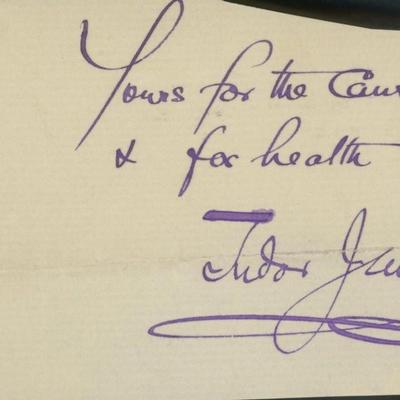 Yours for the
& for health
Tudor